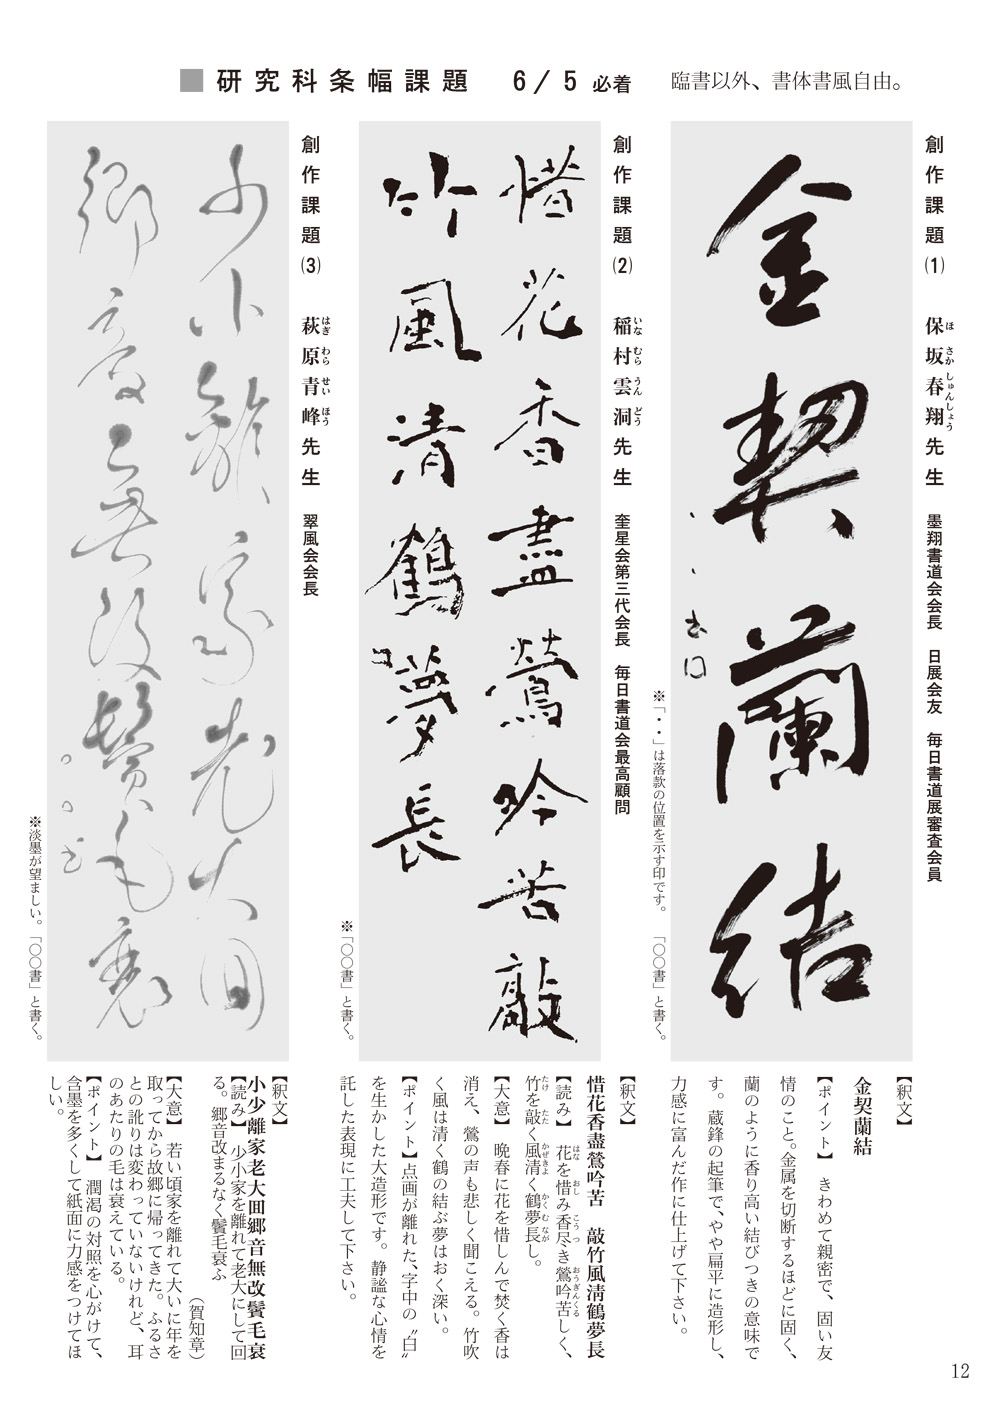 ■研究科条幅課題　6/5必着　臨書以外、書体書風自由。
創作課題(1)　保坂春翔先生　墨翔書道会会長　日展会友　毎日書道展審査会員
ほ さか しゅんしょう
金契蘭結
、、書印
※「・・」は落款の位置を示す印です。　「〇〇書」と書く。
【釈文】
金契蘭結
【ポイント】　きわめて親密で、固い友
情のこと。金属を切断するほどに固く、
蘭のように香り高い結びつきの意味で
す。蔵鋒の起筆で、やや扁平に造形し、
力感に富んだ作に仕上げて下さい。
創作課題(2)　稲村雲洞先生　奎星会第三代会長　毎日書道会最高顧問
いな むら うん どう
惜花香盡鶯吟苦敲
竹風清鶴夢長
※「〇〇書」と書く。
【釈文】
惜花香盡鶯吟苦　敲竹風清鶴夢長
【読み】　花を惜み香尽き鶯吟苦しく、
はな おし こうつ おうぎんくる
竹を敲く風清く鶴夢長し。
たけ たた かぜきよ かくむなが
【大意】　晩春に花を惜しんで焚く香は
消え、鶯の声も悲しく聞こえる。竹吹
く風は清く鶴の結ぶ夢はおく深い。
【ポイント】点画が離れた、字中の〝白〟
を生かした大造形です。静謐な心情を
託した表現に工夫して下さい。
創作課題(3)　萩原青峰先生　翠風会会長
はぎ わら せい ほう
少小離家老大回
郷音無改鬢毛衰
〇〇書
※淡墨が望ましい。「〇〇書」と書く。
【釈文】
小少離家老大囬郷音無改鬢毛衰
【読み】　少小家を離れて老大にして回
る。郷音改まるなく鬢毛衰ふ
（賀知章）
【大意】　若い頃家を離れて大いに年を
取ってから故郷に帰ってきた。ふるさ
との訛りは変わっていないけれど、耳
のあたりの毛は衰えている。
【ポイント】　潤渇の対照を心がけて、
含墨を多くして紙面に力感をつけてほ
しい。
12